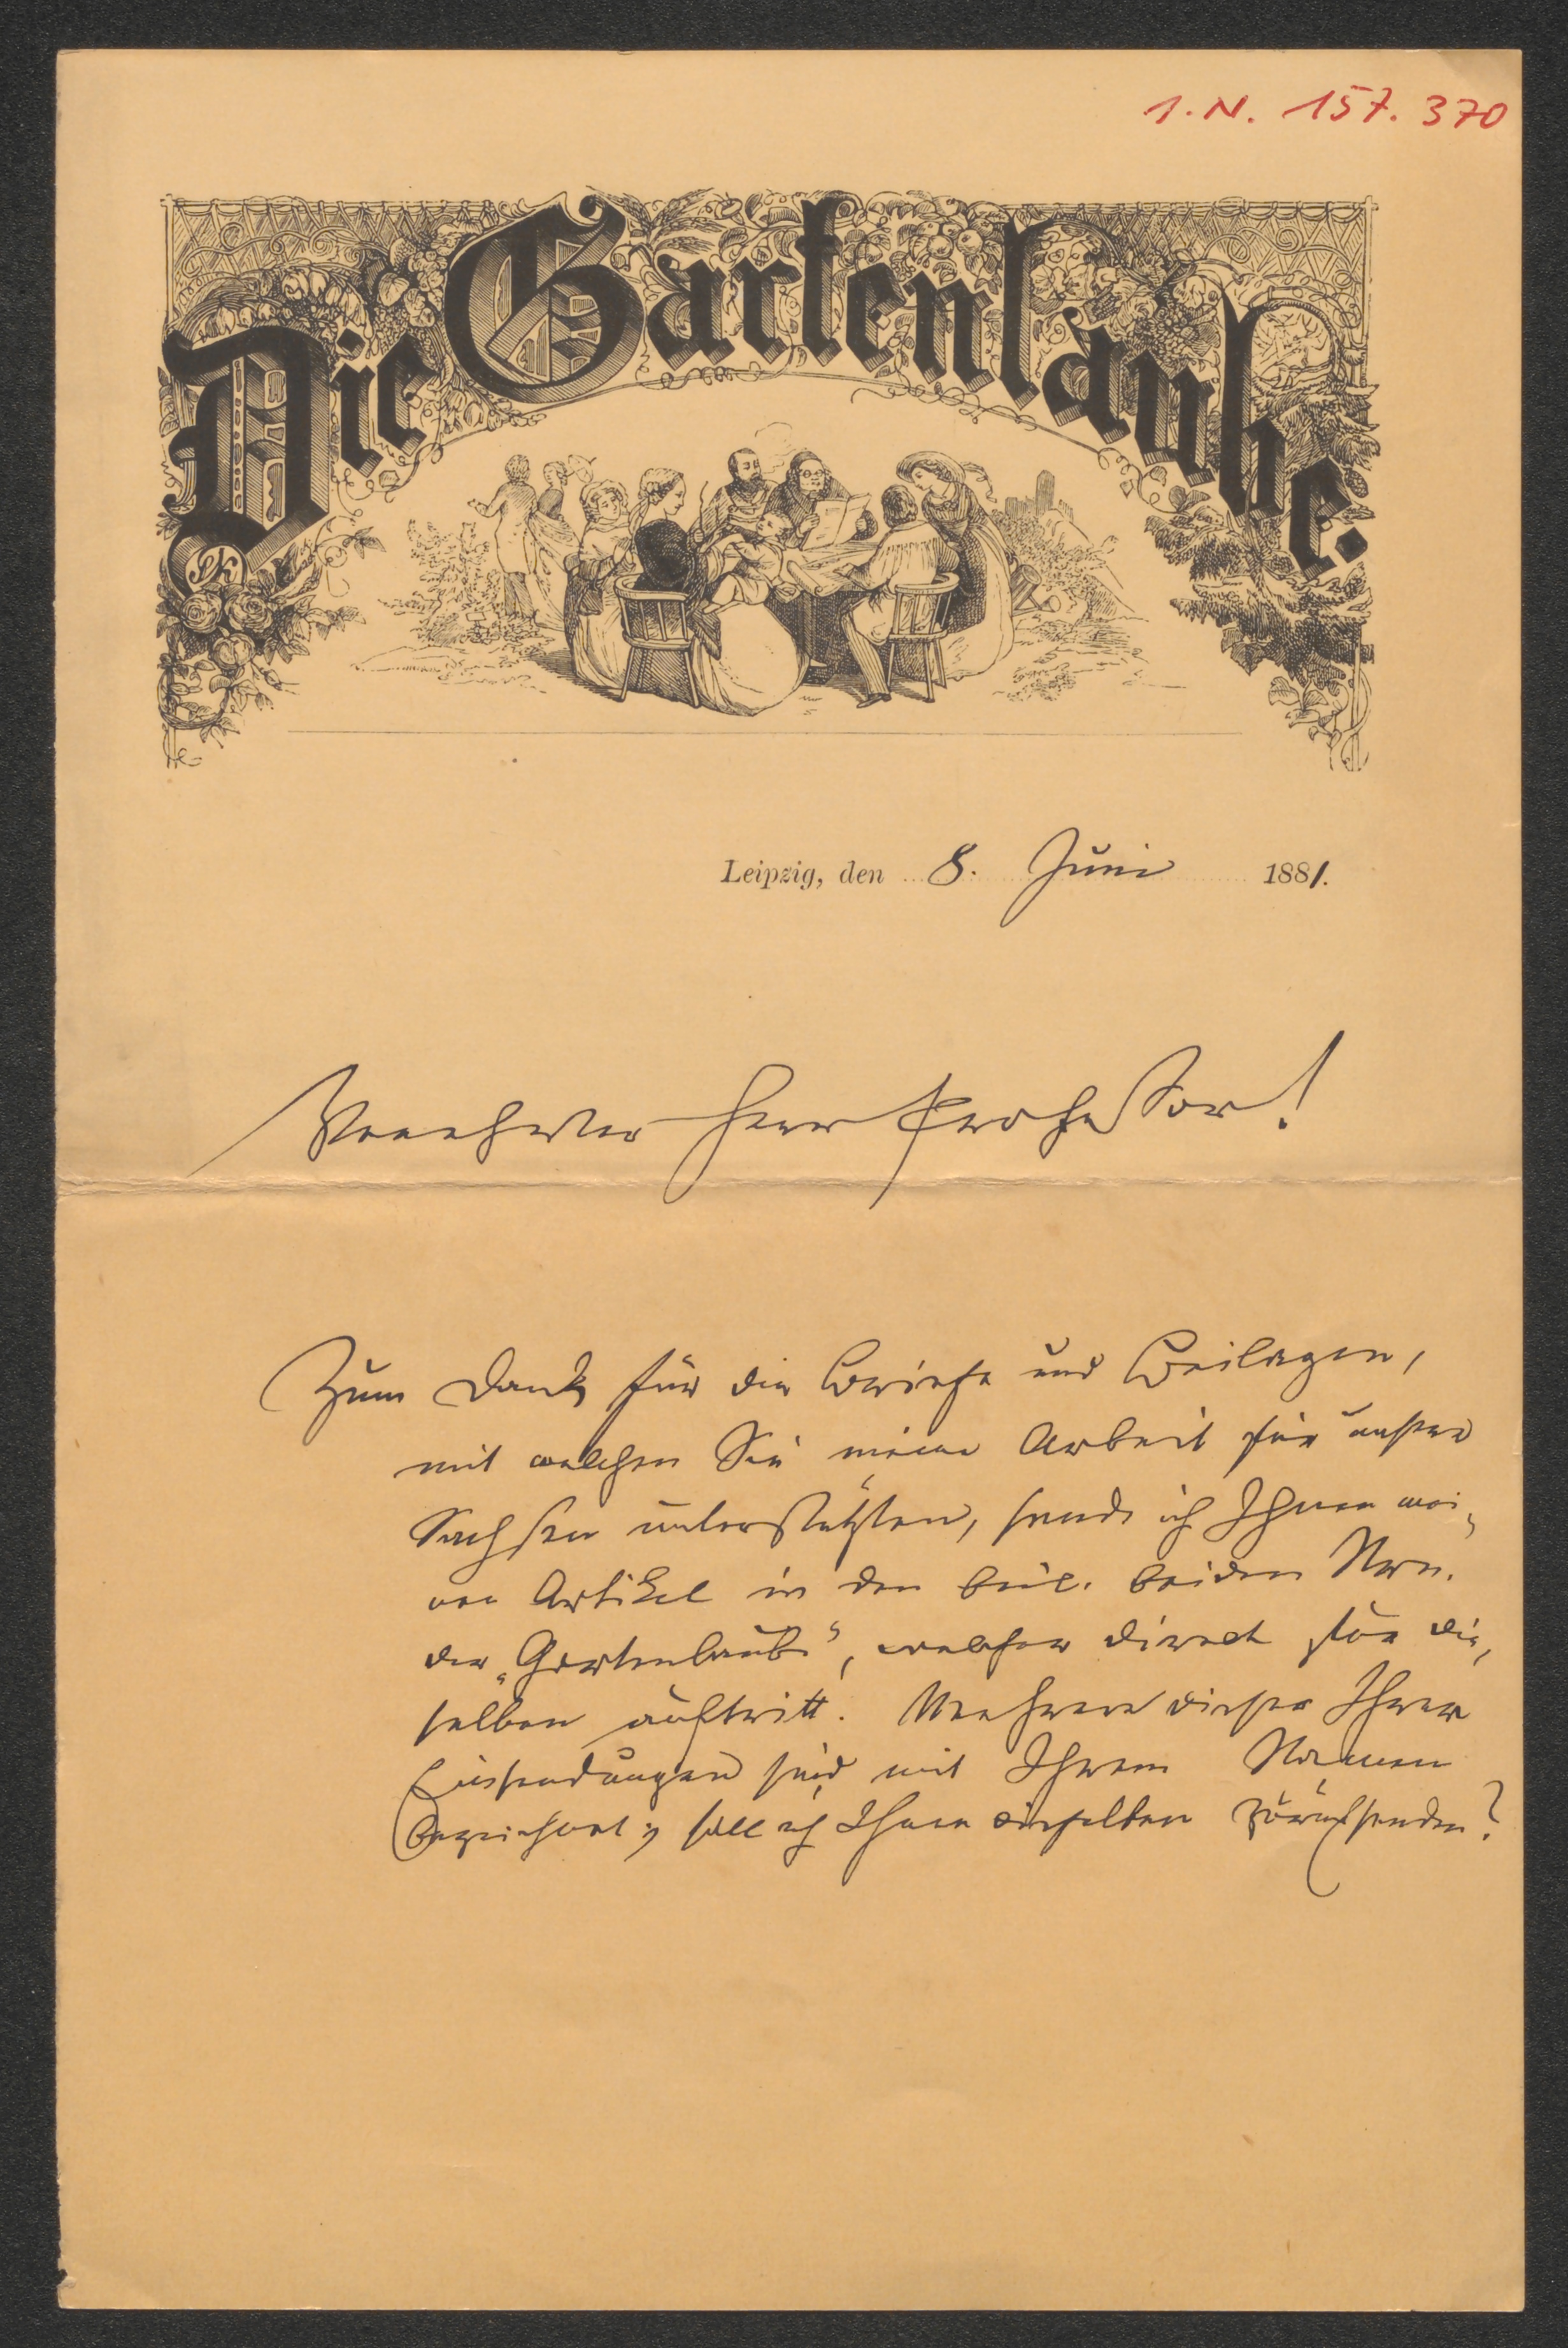 I.N. 157.370
Die Gartenlaube.
Leipzig, den 8. Juni 1881.
Verehrter Herr Professor!
Zum Dank für die Briefe und Beilagen,
mit welchen Sie meine Arbeit für unsere
Sachsen unterstützten, sende ich Ihnen mei-
nen Artikel in den beil. beiden Nrn.
der „Gartenlaube", welcher direct für die-
selben auftritt. Mehrere dieser Ihrer
Einsendungen sind mit Ihrem Namen
bezeichnet; soll ich Ihnen dieselben zurücksenden?